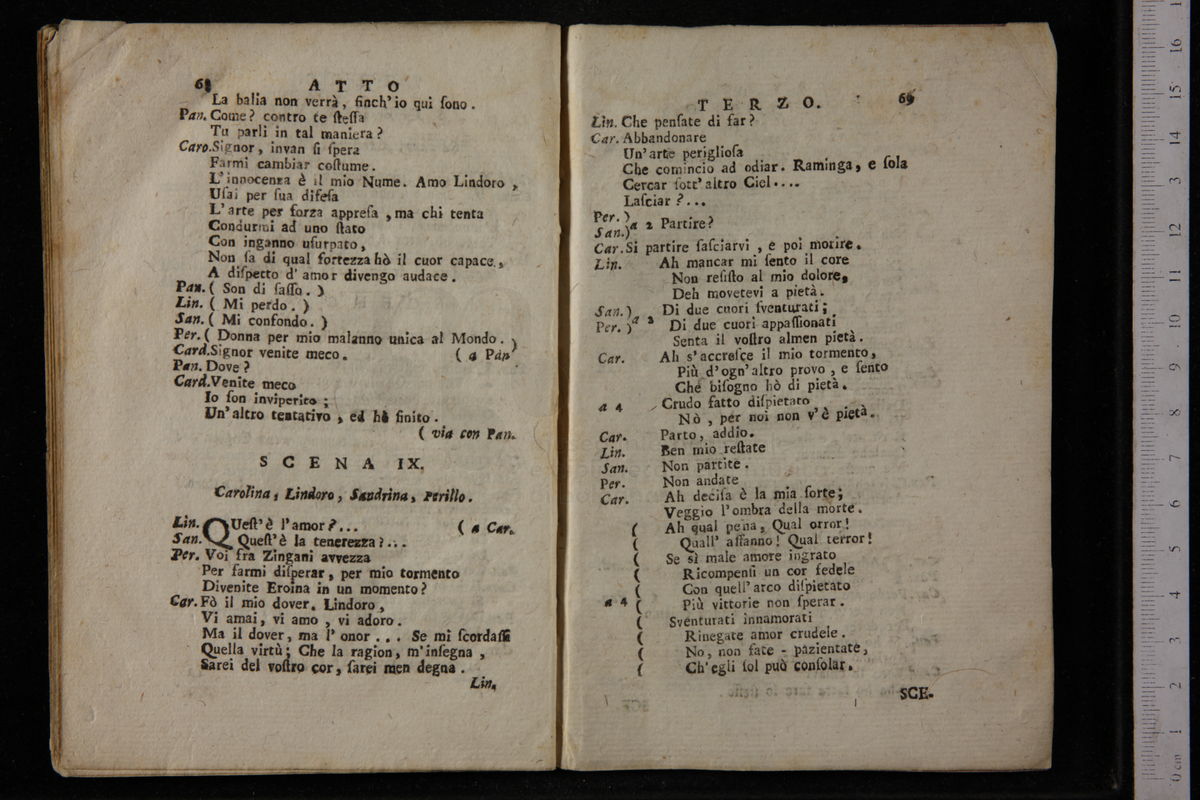 68 ATTO
La balia non verrà, finch'io qui ſono.
Pan. Come? contro te ſteſſa
Tu parli in tal maniera?
Caro. Signor, invan ſi ſpera
Farmi cambiar coſtume.
L'innocenza è il mio Nume. Amo Lindoro,
Uſai per ſua difeſa
L'arte per forza appreſa, ma chi tenta
Condurmi ad uno ſtato
Con inganno uſurpato,
Non ſa di qual fortezza hò il cuor capace,
A diſpetto d'amor divengo audace.
Pan. ( Son di ſaſſo. )
Lin. ( Mi perdo. )
San. ( Mi confondo. )
Per. ( Donna per mio malanno unica al Mondo. )
Card. Signor venite meco. ( a Pan
Pan. Dove?
Card. Venite meco
Io ſon inviperito;
Un'altro tentativo, ed hò finito.
( via con Pan.
SCENA IX.
Carolina, Lindoro, Sandrina, Perillo.
Lin. QUeſt'è l'amor?... ( a Car.
San. Queſt'è la tenerezza?...
Per. Voi fra Zingani avvezza
Per farmi diſperar, per mio tormento
Divenite Eroina in un momento?
Car. Fò il mio dover. Lindoro,
Vi amai, vi amo, vi adoro.
Ma il dover, ma l'onor... Se mi ſcordaſſi
Quella virtù; Che la ragion, m'inſegna,
Sarei del voſtro cor, ſarei men degna.
Lin.
TERZO. 69
Lin. Che penſate di far?
Car. Abbandonare
Un'arte periglioſa
Che comincio ad odiar. Raminga, e ſola
Cercar ſott'altro Ciel....
Laſciar?...
Per. )
San. ) a 2 Partire?
Car. Si partire laſciarvi, e poi morire.
Lin. Ah mancar mi ſento il core
Non reſiſto al mio dolore,
Deh movetevi a pietà.
San. ) a 2 Di due cuori ſventurati;
Per. ) Di due cuori appaſſionati
Senta il voſtro almen pietà.
Car. Ah s'accreſce il mio tormento,
Più d'ogn'altro provo, e ſento
Ché biſogno hò di pietà.
a 4 Crudo fatto diſpietato
Nò, per noi non v'è pietà.
Car. Parto, addio.
Lin. Ben mio reſtate
San. Non partite.
Per. Non andate
Car. Ah deciſa è la mia ſorte;
Veggio l'ombra della morte.
( Ah qual pena, Qual orror!
( Quall' affanno! Qual terror!
( Se sì male amore ingrato
( Ricompenſi un cor fedele
( Con quell'arco diſpietato
a 4 ( Più vittorie non ſperar.
( Sventurati innamorati
( Rinegate amor crudele.
( No, non fate - pazientate,
( Ch'egli ſol può conſolar.
SCE-
0 cm 1 2 3 4 5 6 7 8 9 10 11 12 13 14 15 16